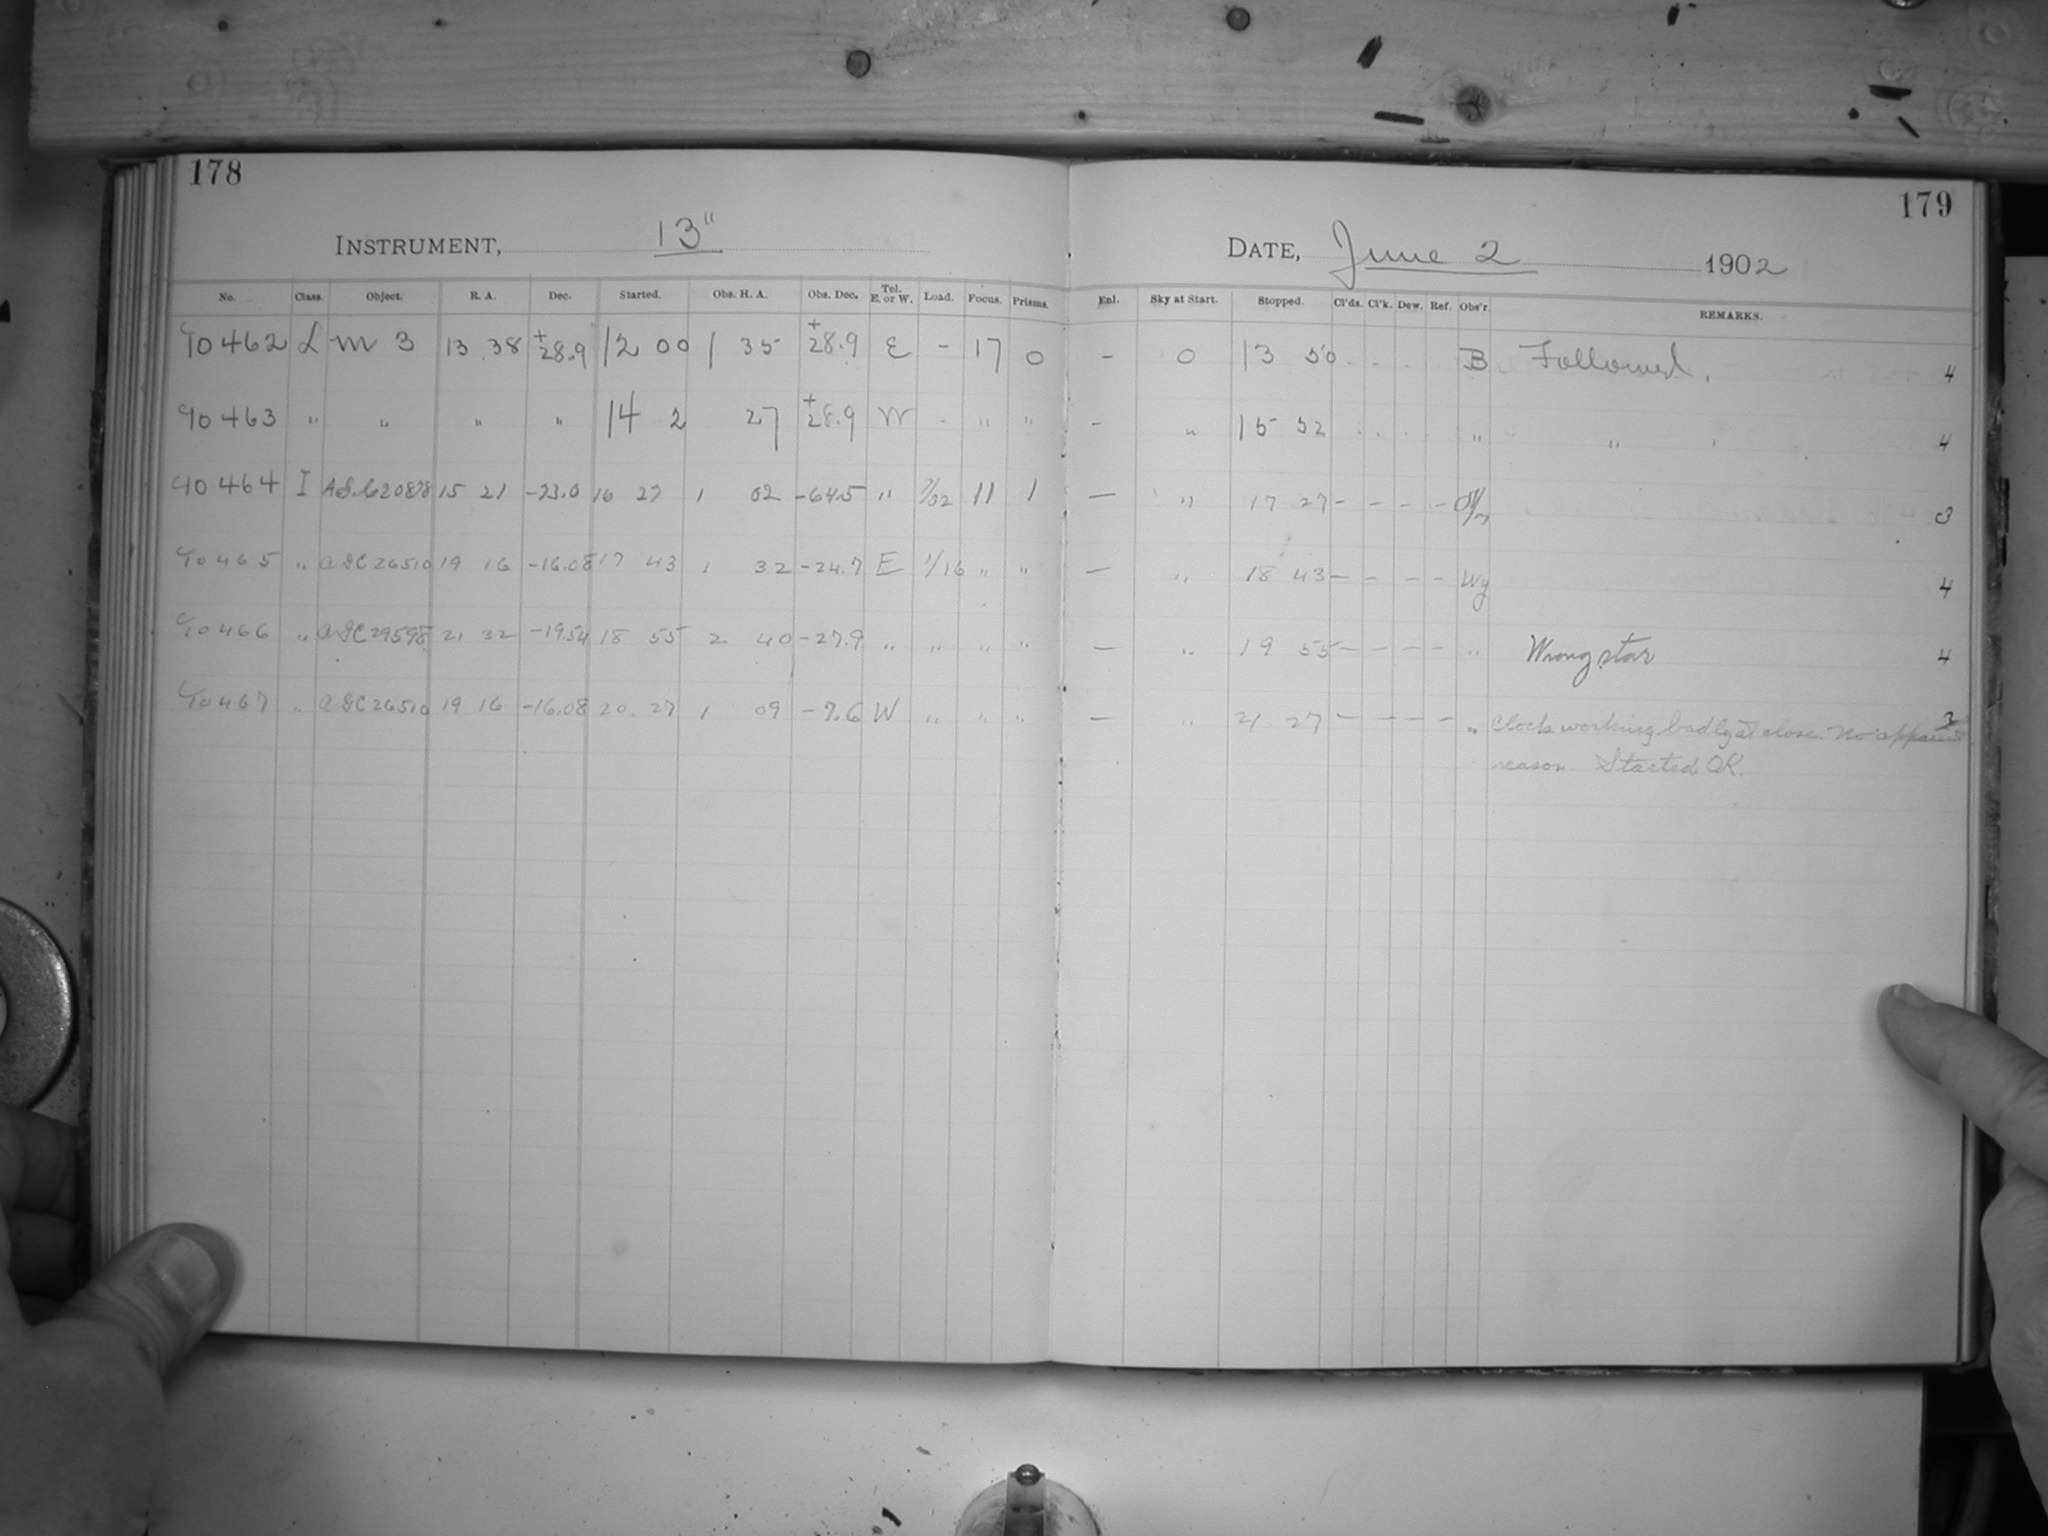 178
179
INSTRUMENT, 13"
DATE, June 2 1902
No. Class. Object. R. A. Dec. Started. Obs. H. A. Obs. Dec. Tel. E. or W. Load. Focus. Prisms.
Enl. Sky at Start. Stopped. Cl'ds. Cl'k. Dew. Ref. Obs'r. REMARKS.
40462 L M 3 13 38 +28.9 12 00 1 35 +28.9 E - 17 0 - 0 13 50 . . . B Followed. 4
40463 " " " " 14 2 27 +28.9 W - " " - " 15 52 . . . . " " 4
40464 I 15 21 -23.0 16 27 1 02 -64.5 " 11 1 — " 17 27 - - - - 3
40465 " AGC 26510 19 16 -16.08 17 43 1 32 -24.7 E 1/16 " " — " 18 43 - - - - Wy 4
40466 " AGC 29598 21 32 -19.54 18 55 2 40 -27.9 " " " " — " 19 55 - - - - " Wrong star 4
40467 " AGC 26510 19 16 -16.08 20 27 1 09 -7.6 W " " " — " 21 27 - - - - " Clock working badly at close. No apparent 3
reason. Started OK.